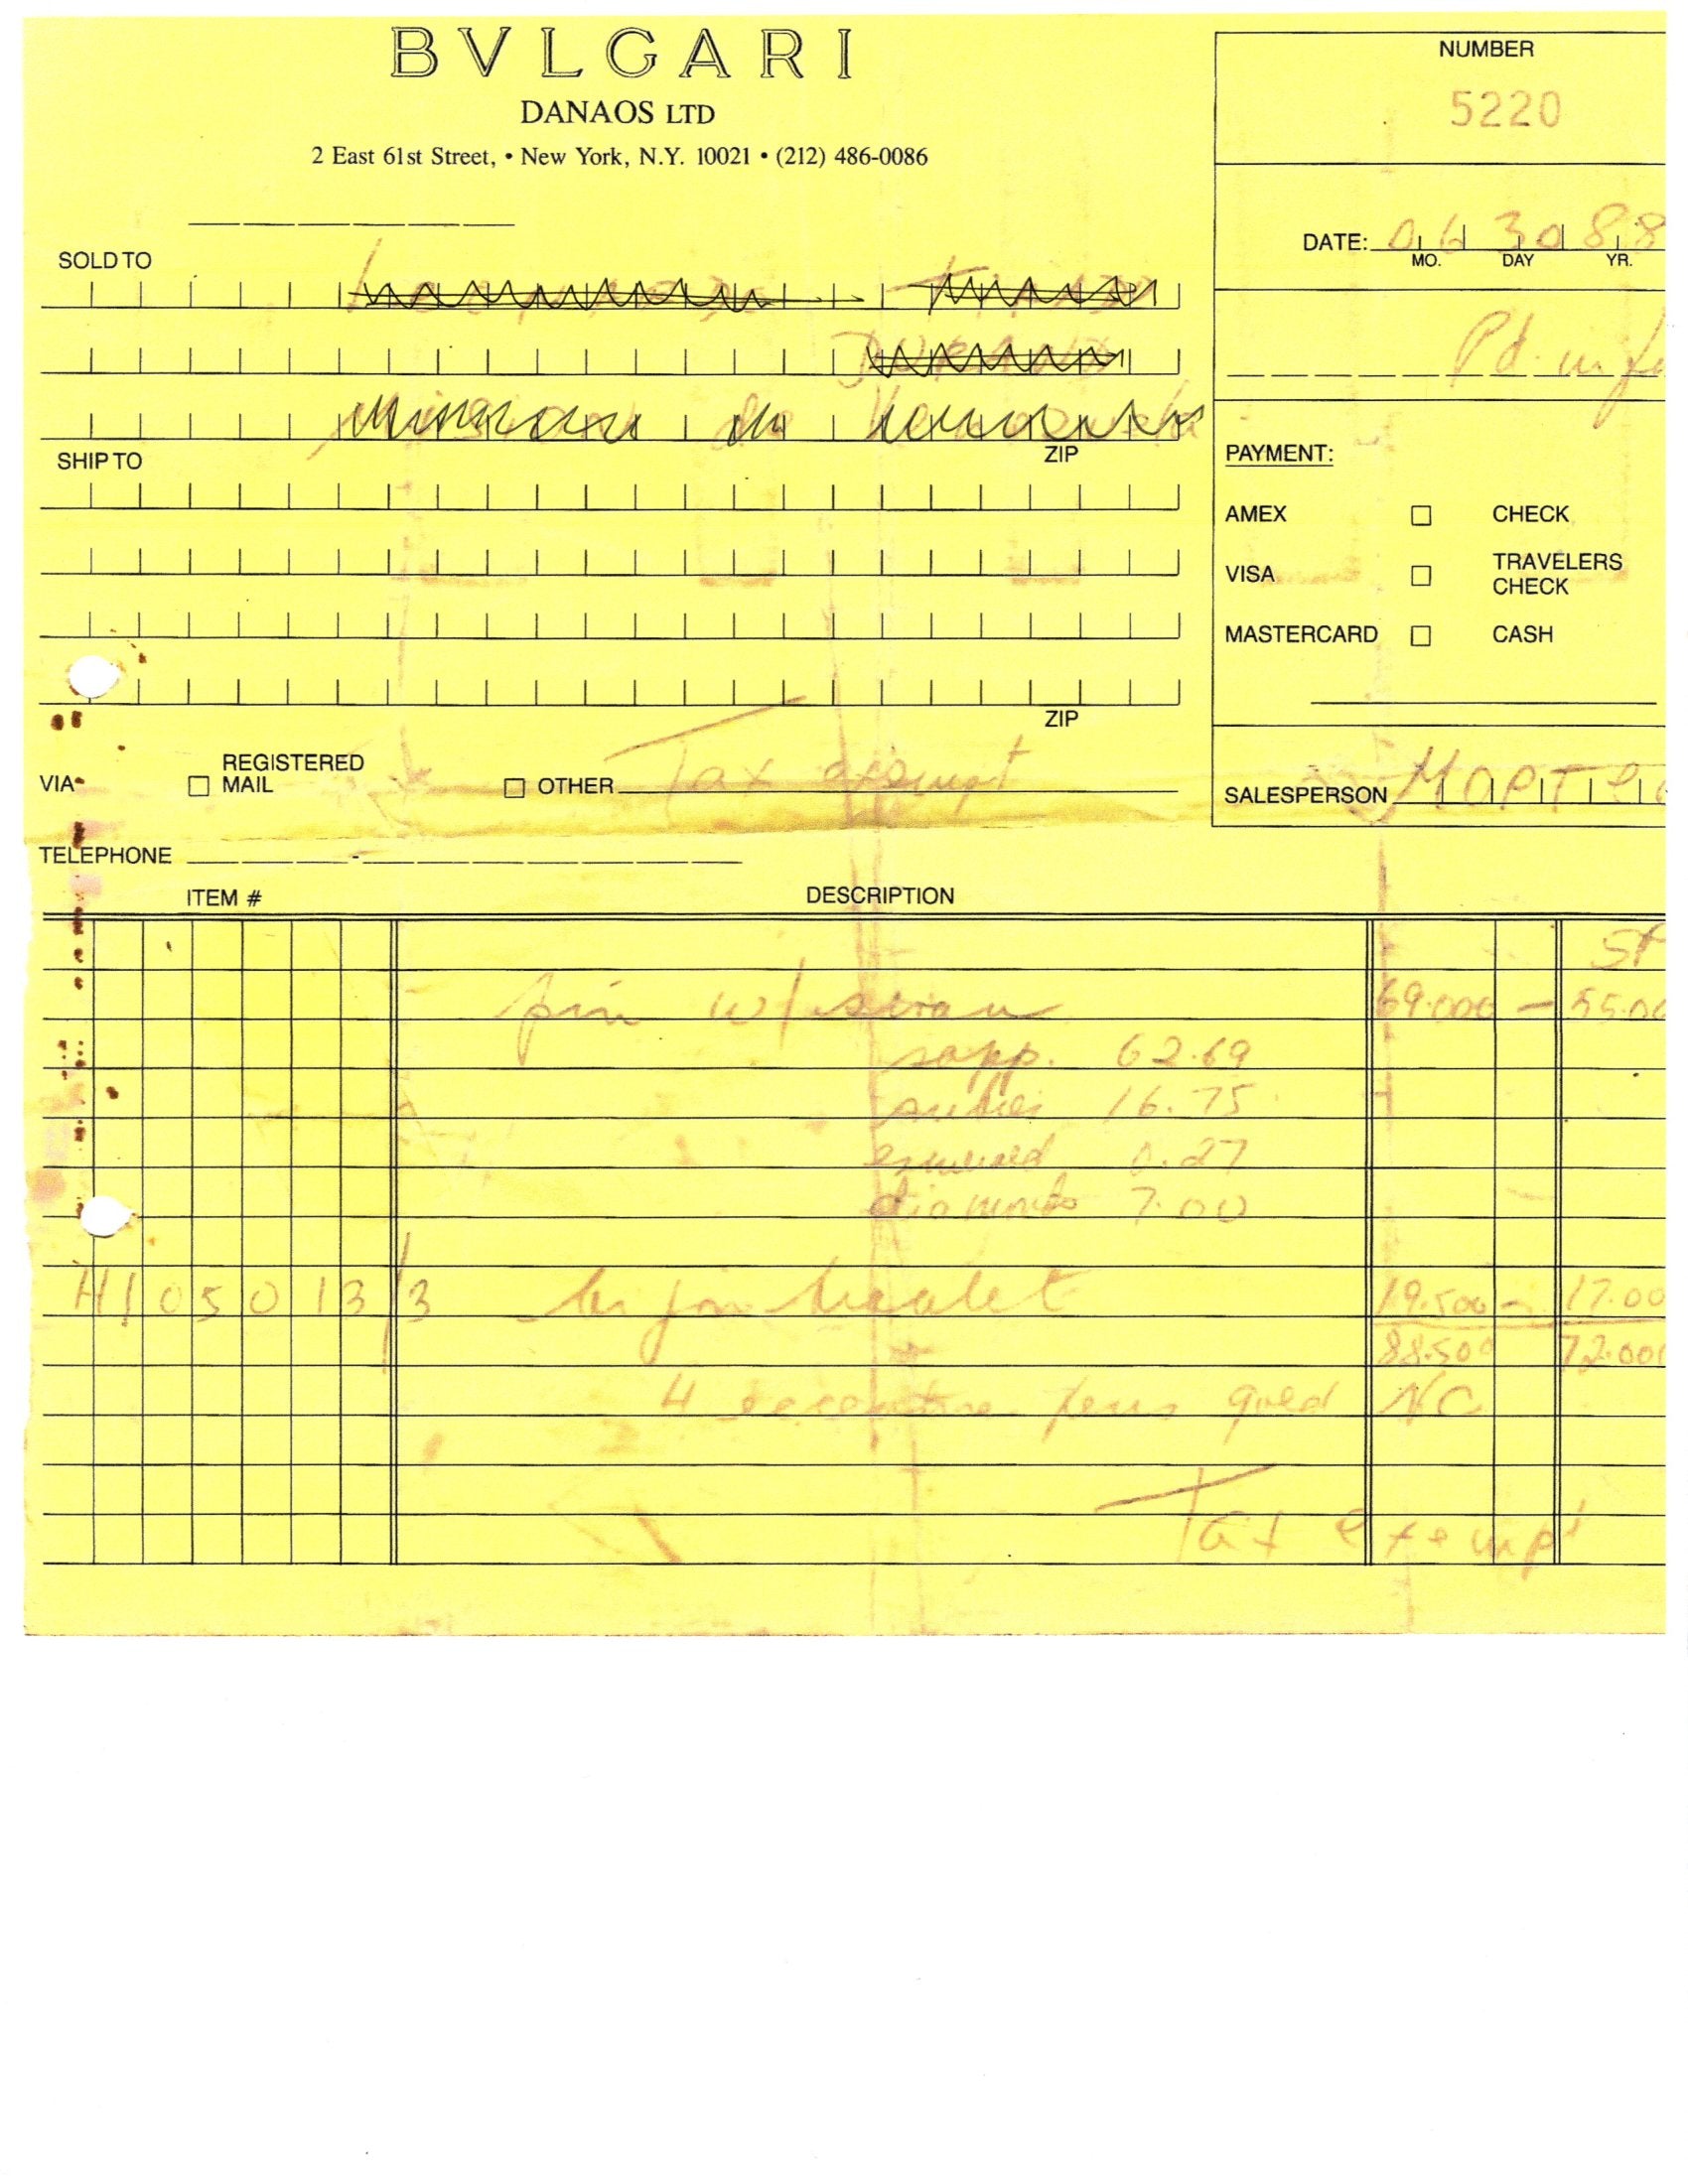 BVLGARI
DANAOS LTD
2 East 61st Street, • New York, N.Y. 10021 • (212) 486-0086
NUMBER
5220
DATE: 06 30 88
MO. DAY YR.
SOLD TO
Pd. in
ZIP
SHIP TO
ZIP
PAYMENT:
AMEX CHECK
VISA TRAVELERS CHECK
MASTERCARD CASH
VIA REGISTERED MAIL OTHER Tax exempt
SALESPERSON
TELEPHONE
ITEM # DESCRIPTION
St
pin w/ 69.000 - 55.00
sapp. 62.69
rubies 16.75
emerald 0.27
diamonds 7.00
H105013/3 bracelet 19.500 - 17.00
88.500 72.000
4 pens gold NC
Tax exempt